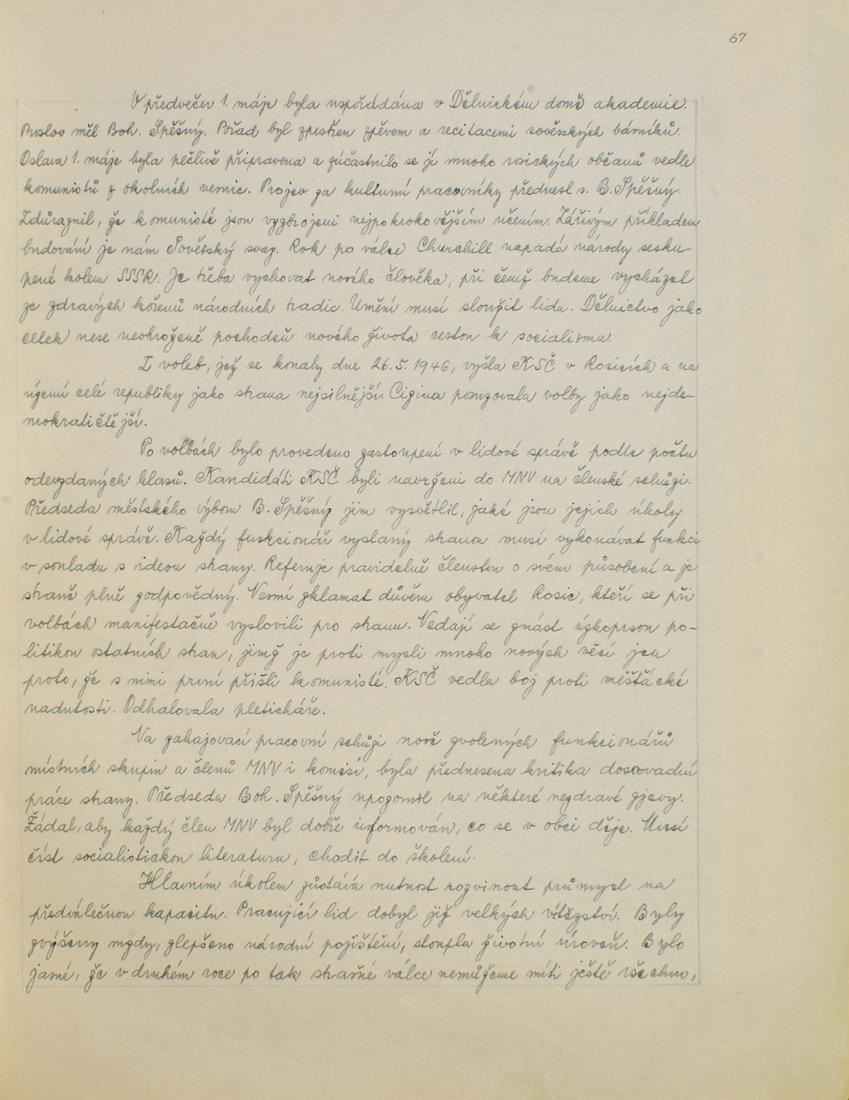 67
V předvečer 1. máje byla uspořádána v Dělnickém domě akademie.
Proslov měl Boh. Spěšný. Pořad byl zpestřen zpěvem a recitacemi sovětských básníků.
Oslava 1. máje byla pečlivě připravena a zúčastnilo se jí mnoho rosických občanů vedle
komunistů z okolních vesnic. Projev za kulturní pracovníky přednesl s. B. Spěšný.
Zdůraznil, že komunisté jsou vyzbrojeni nejpokrokovějším učením. Zářivým příkladem
budování je nám Sovětský svaz. Rok po válce Churchill napadá národy sesku-
pené kolem SSSR. Je třeba vychovat nového člověka, při čemž budeme vycházet
ze zdravých kořenů národních tradic. Umění musí sloužit lidu. Dělnictvo jako
celek nese neohroženě pochodeň nového života cestou k socialismu.
Z voleb, jež se konaly dne 26.5.1946, vyšla KSČ v Rosicích a na
území celé republiky jako strana nejsilnější. Cizina posuzovala volby jako nejde-
mokratičtější.
Po volbách bylo provedeno zastoupení v lidové správě podle počtu
odevzdaných hlasů. Kandidáti KSČ byli navrženi do MNV na členské schůzi.
Předseda městského výboru B. Spěšný jim vysvětlil, jaké jsou jejich úkoly
v lidové správě. Každý funkcionář vyslaný stranou musí vykonávat funkci
v souladu s ideou strany. Referuje pravidelně členstvu o svém působení a je
straně plně zodpovědný. Nesmí zklamat důvěru obyvatel Rosic, kteří se při
volbách manifestačně vyslovili pro stranu. Nedají se zmást úzkoprsou po-
litikou ostatních stran, jimž je proti mysli mnoho nových věcí jen
proto, že s nimi první přišli komunisté. KSČ vedla boj proti měšťácké
nadutosti. Odhalovala pleticháře.
Na zahajovací pracovní schůzi nově zvolených funkcionářů
místních skupin a členů MNV i komisí, byla přednesena kritika dosavadní
práce strany. Předseda Boh. Spěšný upozornil na některé nezdravé zjevy.
Žádal, aby každý člen MNV byl dobře informován, co se v obci děje. Musí
číst socialistickou literaturu, chodit do školení.
Hlavním úkolem zůstává nutnost rozvinout průmysl na
předválečnou kapacitu. Pracující lid dobyl již velkých vítězství. Byly
zvýšeny mzdy, zlepšeno národní pojištění, stoupla životní úroveň. Bylo
jasné, že v druhém roce po tak strašné válce nemůžeme míti ještě všechno,